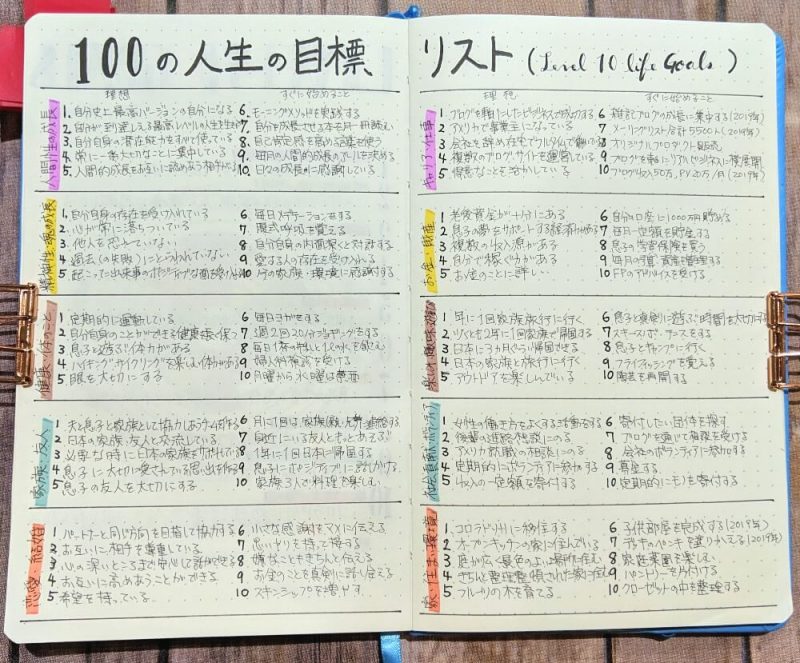 100の人生の目標 リスト (Level 10 life Goals)
理想 すぐに始めること
人間・人生の成長
1. 自分史上最高バージョンの自分になる
2 自分が到達しえる最高レベルの人生を
3 自分自身の潜在能力をすべて使っている
4. 常に一番大切なことに集中している
5. 人間的成長をお互いに認めあう
6. モーニングメソッドを実践する
7. 自分を成長させる本を月一冊読む
8. 自己肯定感を高める言葉を使う
9. 毎月の人間的成長のゴールを決める
10. 日々の成長に感謝している
精神性・魂の成長
1. 自分自身の存在を受け入れている
2. 心が常に落ちついている
3 他人を恐れていない
4 過去(の失敗)にとらわれていない
5 起こった出来事のポジティブな面を
6 毎日メディテーションをする
7. 腹式呼吸を覚える
8 自分自身の内面深くと対話する
9 愛する人の存在を受け入れる
10 今の家族・環境に感謝する
健康・体のこと
1 定期的に運動している
2 自分自身のことができる健康を保つ
3 息子と遊ぶ体力がある
4 ハイキング・サイクリングを楽しむ体力がある
5 眼を大切にする
6 毎日ヨガをする
7 週2回20分ジョギングをする
8 毎日1体の 1ℓの水を飲む
9 婦人科検診を受ける
10 月曜から水曜は禁酒
家族・友人
1 夫と息子と家族として協力しあうチーム
2 日本の家族・友人と交流している
3 必要な時に日本の家族をサポート
4. 息子に大切に愛されている思い出を作る
5 息子の友人を大切にする
6 月に1回は家族
7 身近にいる友人ともっとあそぶ
8 1年に1回日本に帰省する
9 息子にポジティブに話しかける
10 家族3人で料理を楽しむ
恋愛・結婚
1. パートナーと同じ方向を目指して協力する
2 お互いに相手を尊重している
3 心の深いところまで安心して話ができる
4 お互いに高めあうことができる
5 希望を持っている
6 小さな感謝をマメに伝える
7. 思いやりを持って接する
8 嫌なこともきちんと伝える
9 お金のことを真剣に話し合える
10 スキンシップを増やす
理想 すぐに始めること
キャリア・仕事
1. ブログを軸にしたビジネスで成功する
2 アメリカで事業主になっている
3 会社を辞め在宅でフルタイムで働く
4 複数のブログ・サイトを運営している
5. 得意なことを活かしている
6 雑記ブログの成長に集中する(2019年)
7. メーリングリスト合計5500人(2019年)
8 オリジナルプロダクト販売
9 ブログを軸にリアルビジネスに
10 ブログ収入50万, PV20万/月(2019年)
お金・財産
1 老後資金が十分にある
2 息子の夢をサポートする経済力がある
3 複数の収入源がある
4 自分で稼ぐ力がある
5 お金のことに詳しい
6 自分口座に1000万円貯める
7 毎月一定額を貯金する
8 息子の学資保険を買う
9 毎月の予算・資産を管理する
10 FPのアドバイスを受ける
楽しみ・趣味・遊び
1. 年に1回家族旅行に行く
2 少くとも2年に1回家族で帰国する
3 日本に3ヵ月ぐらい帰国できる
4 日本の家族と旅行に行く
5 アウトドアを楽しんでいる
6 息子と真剣に遊ぶ時間を大切にする
7. スキー・スノーボードをする
8 息子とキャンプに行く
9 フライフィッシングを覚える
10 陶芸を再開する
社会貢献・ボランティア
1 女性の働き方をよくする
2 後輩の進路相談にのる
3 アメリカ就職の相談にのる
4 定期的にボランティアに参加する
5 収入の一定額を寄付する
6 寄付したい団体を探す
7 ブログを通じて相談を受ける
8 会社のボランティアに参加する
9 募金する
10 定期的にモノを寄付する
家・住まい・環境
1. コロラド州に移住する
2. オープンキッチンの家に住んでいる
3 庭が広く景色のよい場所に住む
4 きちんと整理整頓された家に住む
5 フルーツの木を育てる
6 子供部屋を完成する(2019年)
7 デッキのペンキを塗りかえる(2019年)
8 家庭菜園を楽しむ
9 パントリーを片付ける
10 クローゼットの中を整理する